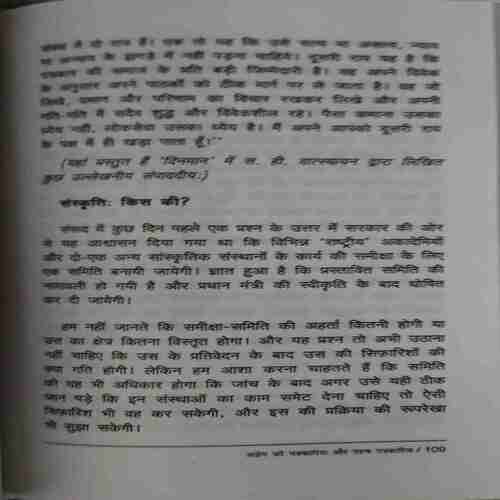 संबंध में दो राय हैं। एक तो यह कि उसे सत्य या असत्य, न्याय
या अन्याय के झगड़े में नहीं पड़ना चाहिये। दूसरी राय यह है कि
पत्रकार की समाज के प्रति बड़ी जिम्मेदारी है। वह अपने विवेक
के अनुसार अपने पाठकों को ठीक मार्ग पर ले जाता है। वह जो
लिखे, प्रमाण और परिणाम का विचार रखकर लिखे और अपनी
गति-मति में सदैव शुद्ध और विवेकशील रहे। पैसा कमाना उसका
ध्येय नहीं, लोकसेवा उसका ध्येय है। मैं अपने आपको दूसरी राय
के पक्ष में ही खड़ा पाता हूँ।''
(यहां प्रस्तुत हैं 'दिनमान' में स. ही. वात्स्यायन द्वारा लिखित
कुछ उल्लेखनीय संपादकीय:)
संस्कृति: किस की?
संसद में कुछ दिन पहले एक प्रश्न के उत्तर में सरकार की ओर
से यह आश्वासन दिया गया था कि विभिन्न 'राष्ट्रीय' अकादेमियों
और दो-एक अन्य सांस्कृतिक संस्थानों के कार्य की समीक्षा के लिए
एक समिति बनायी जायेगी। ज्ञात हुआ है कि प्रस्तावित समिति की
नामावली हो गयी है और प्रधान मंत्री की स्वीकृति के बाद घोषित
कर दी जायेगी।
हम नहीं जानते कि समीक्षा-समिति की अहर्ता कितनी होगी या
उस का क्षेत्र कितना विस्तृत होगा। और यह प्रश्न तो अभी उठाना
नहीं चाहिए कि उस के प्रतिवेदन के बाद उस की सिफ़ारिशों की
क्या गति होगी। लेकिन हम आशा करना चाहते हैं कि समिति
को यह भी अधिकार होगा कि जांच के बाद अगर उसे यही ठीक
जान पड़े कि इन संस्थाओं का काम समेट देना चाहिए तो ऐसी
सिफ़ारिश भी वह कर सकेगी, और इस की प्रक्रिया की रूपरेखा
भी सुझा सकेगी।
की पत्रकारिता और / 109